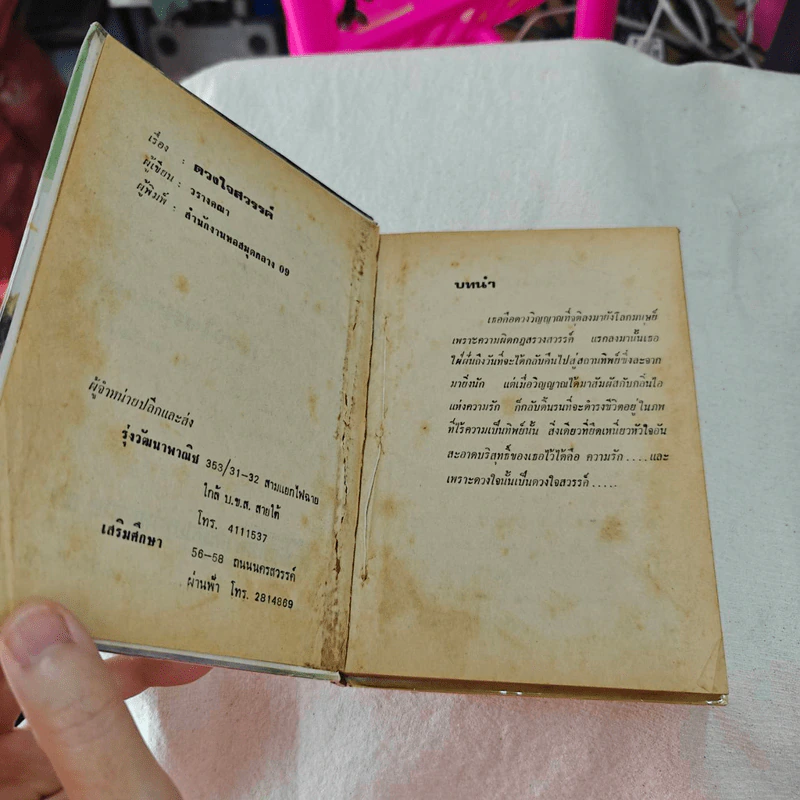 เรื่อง : ดวงใจสวรรค์
ผู้เขียน : วรางคณา
ผู้พิมพ์ : สำนักงานหอสมุดกลาง 09
ผู้จำหน่ายปลีกและส่ง
รุ่งวัฒนาพาณิช 353/31-32 สามแยกไฟฉาย
ใกล้ บ.ข.ส. สายใต้
โทร. 4111537
เสริมศึกษา 56-58 ถนนนครสวรรค์
ผ่านฟ้า โทร. 2814869
บทนำ
เธอคือดวงวิญญาณที่จุติลงมายังโลกมนุษย์
เพราะความผิดกฎสรวงสวรรค์ แรกลงมานั้นเธอ
ใฝ่ฝันถึงวันที่จะได้กลับคืนไปสู่สถานทิพย์ซึ่งละจาก
มายิ่งนัก แต่เมื่อวิญญาณได้มาสัมผัสกับกลิ่นไอ
แห่งความรัก ก็กลับดิ้นรนที่จะดำรงชีวิตอยู่ในภพ
ที่ไร้ความเป็นทิพย์นั้น สิ่งเดียวที่ยึดเหนี่ยวหัวใจอัน
สะอาดบริสุทธิ์ของเธอไว้ได้คือ ความรัก....และ
เพราะดวงใจนั้นเป็นดวงใจสวรรค์.....